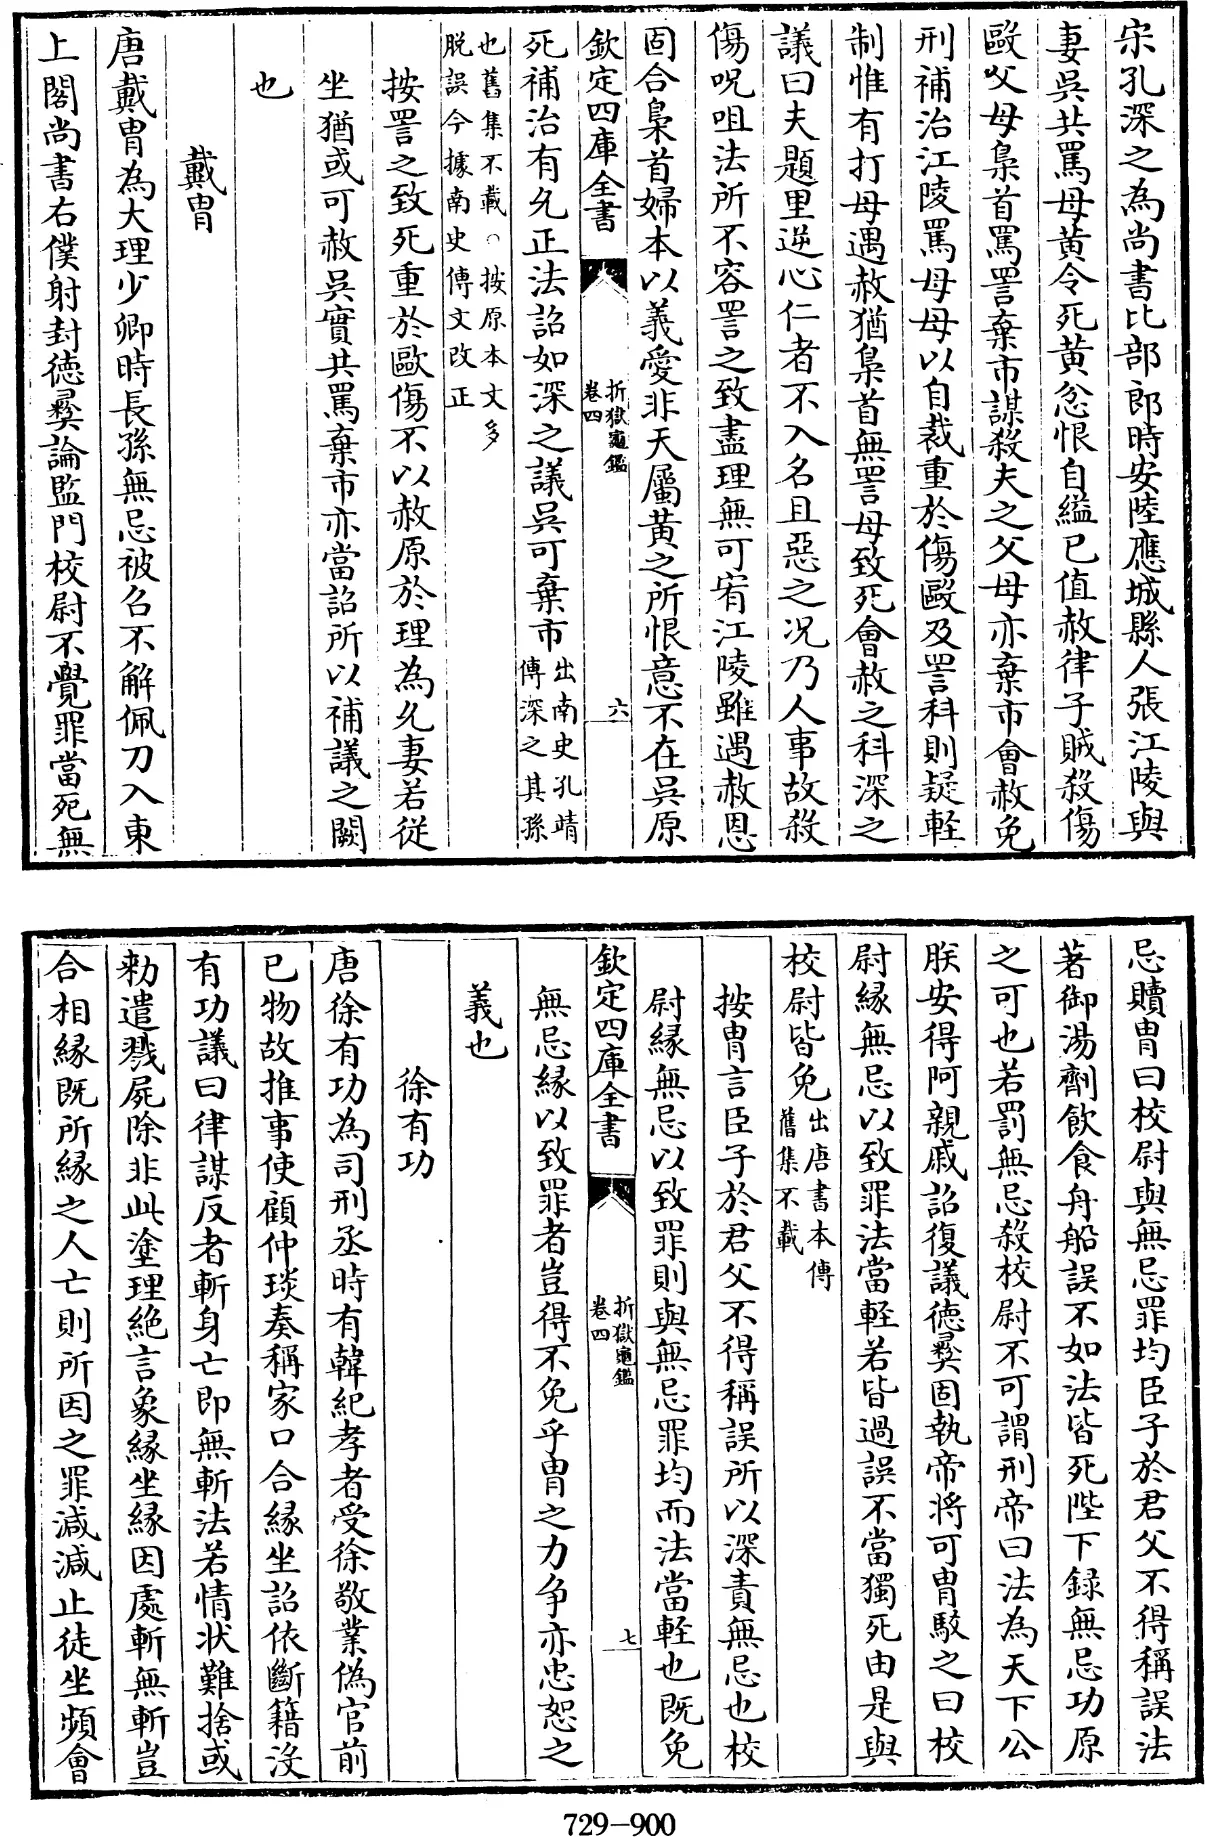 宋孔深之為尚書比部郎時安陸應城縣人張江陵與
妻吳共罵母黃令死黃忿恨自縊已值赦律子賊殺傷
毆父母梟首罵詈棄市謀殺夫之父母亦棄市會赦免
刑補治江陵罵母母以自裁重於傷毆及詈科則疑輕
制惟有打母遇赦猶梟首無詈母致死會赦之科深之
議曰夫題里逆心仁者不入名且惡之况乃人事故殺
傷呪咀法所不容詈之致盡理無可宥江陵雖遇赦恩
固合梟首婦本以義愛非天屬黃之所恨意不在吳原
欽定四庫全書
折獄龜鑑
卷四
六
死補治有允正法詔如深之議吳可棄市出南史孔靖
傳深之其孫
也舊集不載○按原本文多
脱誤今據南史傳文改正
按詈之致死重於毆傷不以赦原於理為允妻若從
坐猶或可赦吳實共罵棄市亦當詔所以補議之闕
也
戴胄
唐戴胄為大理少卿時長孫無忌被召不解佩刀入東
上閤尚書右僕射封德彝論監門校尉不覺罪當死無
忌贖胄曰校尉與無忌罪均臣子於君父不得稱誤法
著御湯劑飲食舟船誤不如法皆死陛下録無忌功原
之可也若罰無忌殺校尉不可謂刑帝曰法為天下公
朕安得阿親戚詔復議德彝固執帝將可胄駁之曰校
尉緣無忌以致罪法當輕若皆過誤不當獨死由是與
校尉皆免出唐書本傳
舊集不載
按胄言臣子於君父不得稱誤所以深責無忌也校
尉緣無忌以致罪則與無忌罪均而法當輕也既免
欽定四庫全書
折獄龜鑑
卷四
七
無忌緣以致罪者豈得不免乎胄之力争亦忠恕之
義也
徐有功
唐徐有功為司刑丞時有韓紀孝者受徐敬業偽官前
已物故推事使顧仲琰奏稱家口合緣坐詔依斷籍沒
有功議曰律謀反者斬身亡即無斬法若情狀難捨或
勑遣戮屍除非此塗理絶言象緣坐緣因處斬無斬豈
合相緣既所緣之人亡則所因之罪減減止徒坐頻會
729-900